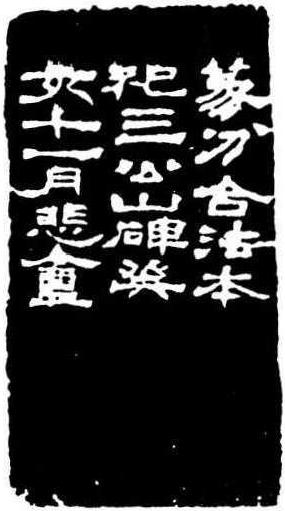 篆分合法本
祀三公山碑癸
亥十一月悲盦